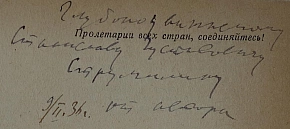 Глубокоуважаемому
Станиславу Густавовичу
Пролетарии всех стран, соединяйтесь!
Струмилину
9/II.36. от автора